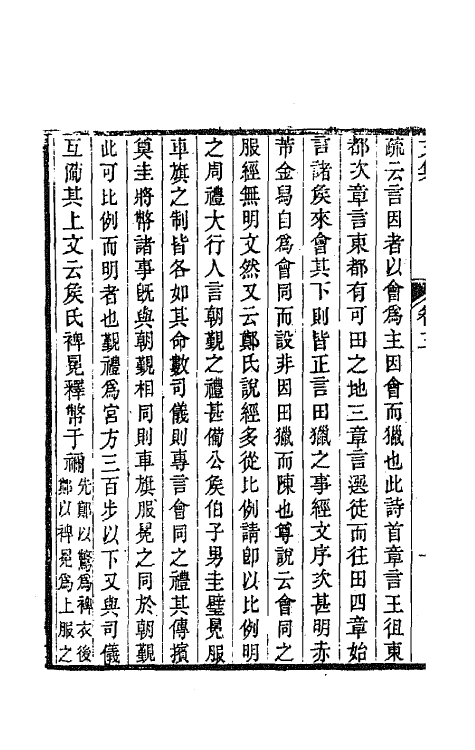 疏云言因者以會爲主因會而獵也此詩首章言王徂東
都次章言東都有可田之地三章言選徒而往田四章始
言諸矦來會其下則皆正言田獵之事經文序次甚明赤
芾金舄自爲會同而設非因田獵而陳也尊說云會同之
服經無明文然又云鄭氏說經多從比例請卽以比例明
之周禮大行人言朝覲之禮甚僃公矦伯子男圭璧冕服
車旗之制皆各如其命數司儀則專言會同之禮其傳擯
奠圭將幣諸事旣與朝覲相同則車旗服冕之同於朝覲
此可比例而明者也覲禮爲宮方三百步以下又與司儀
互僃其上文云矦氏裨冕釋幣于禰先鄭以鷩爲裨衣後鄭以裨冕爲上服之